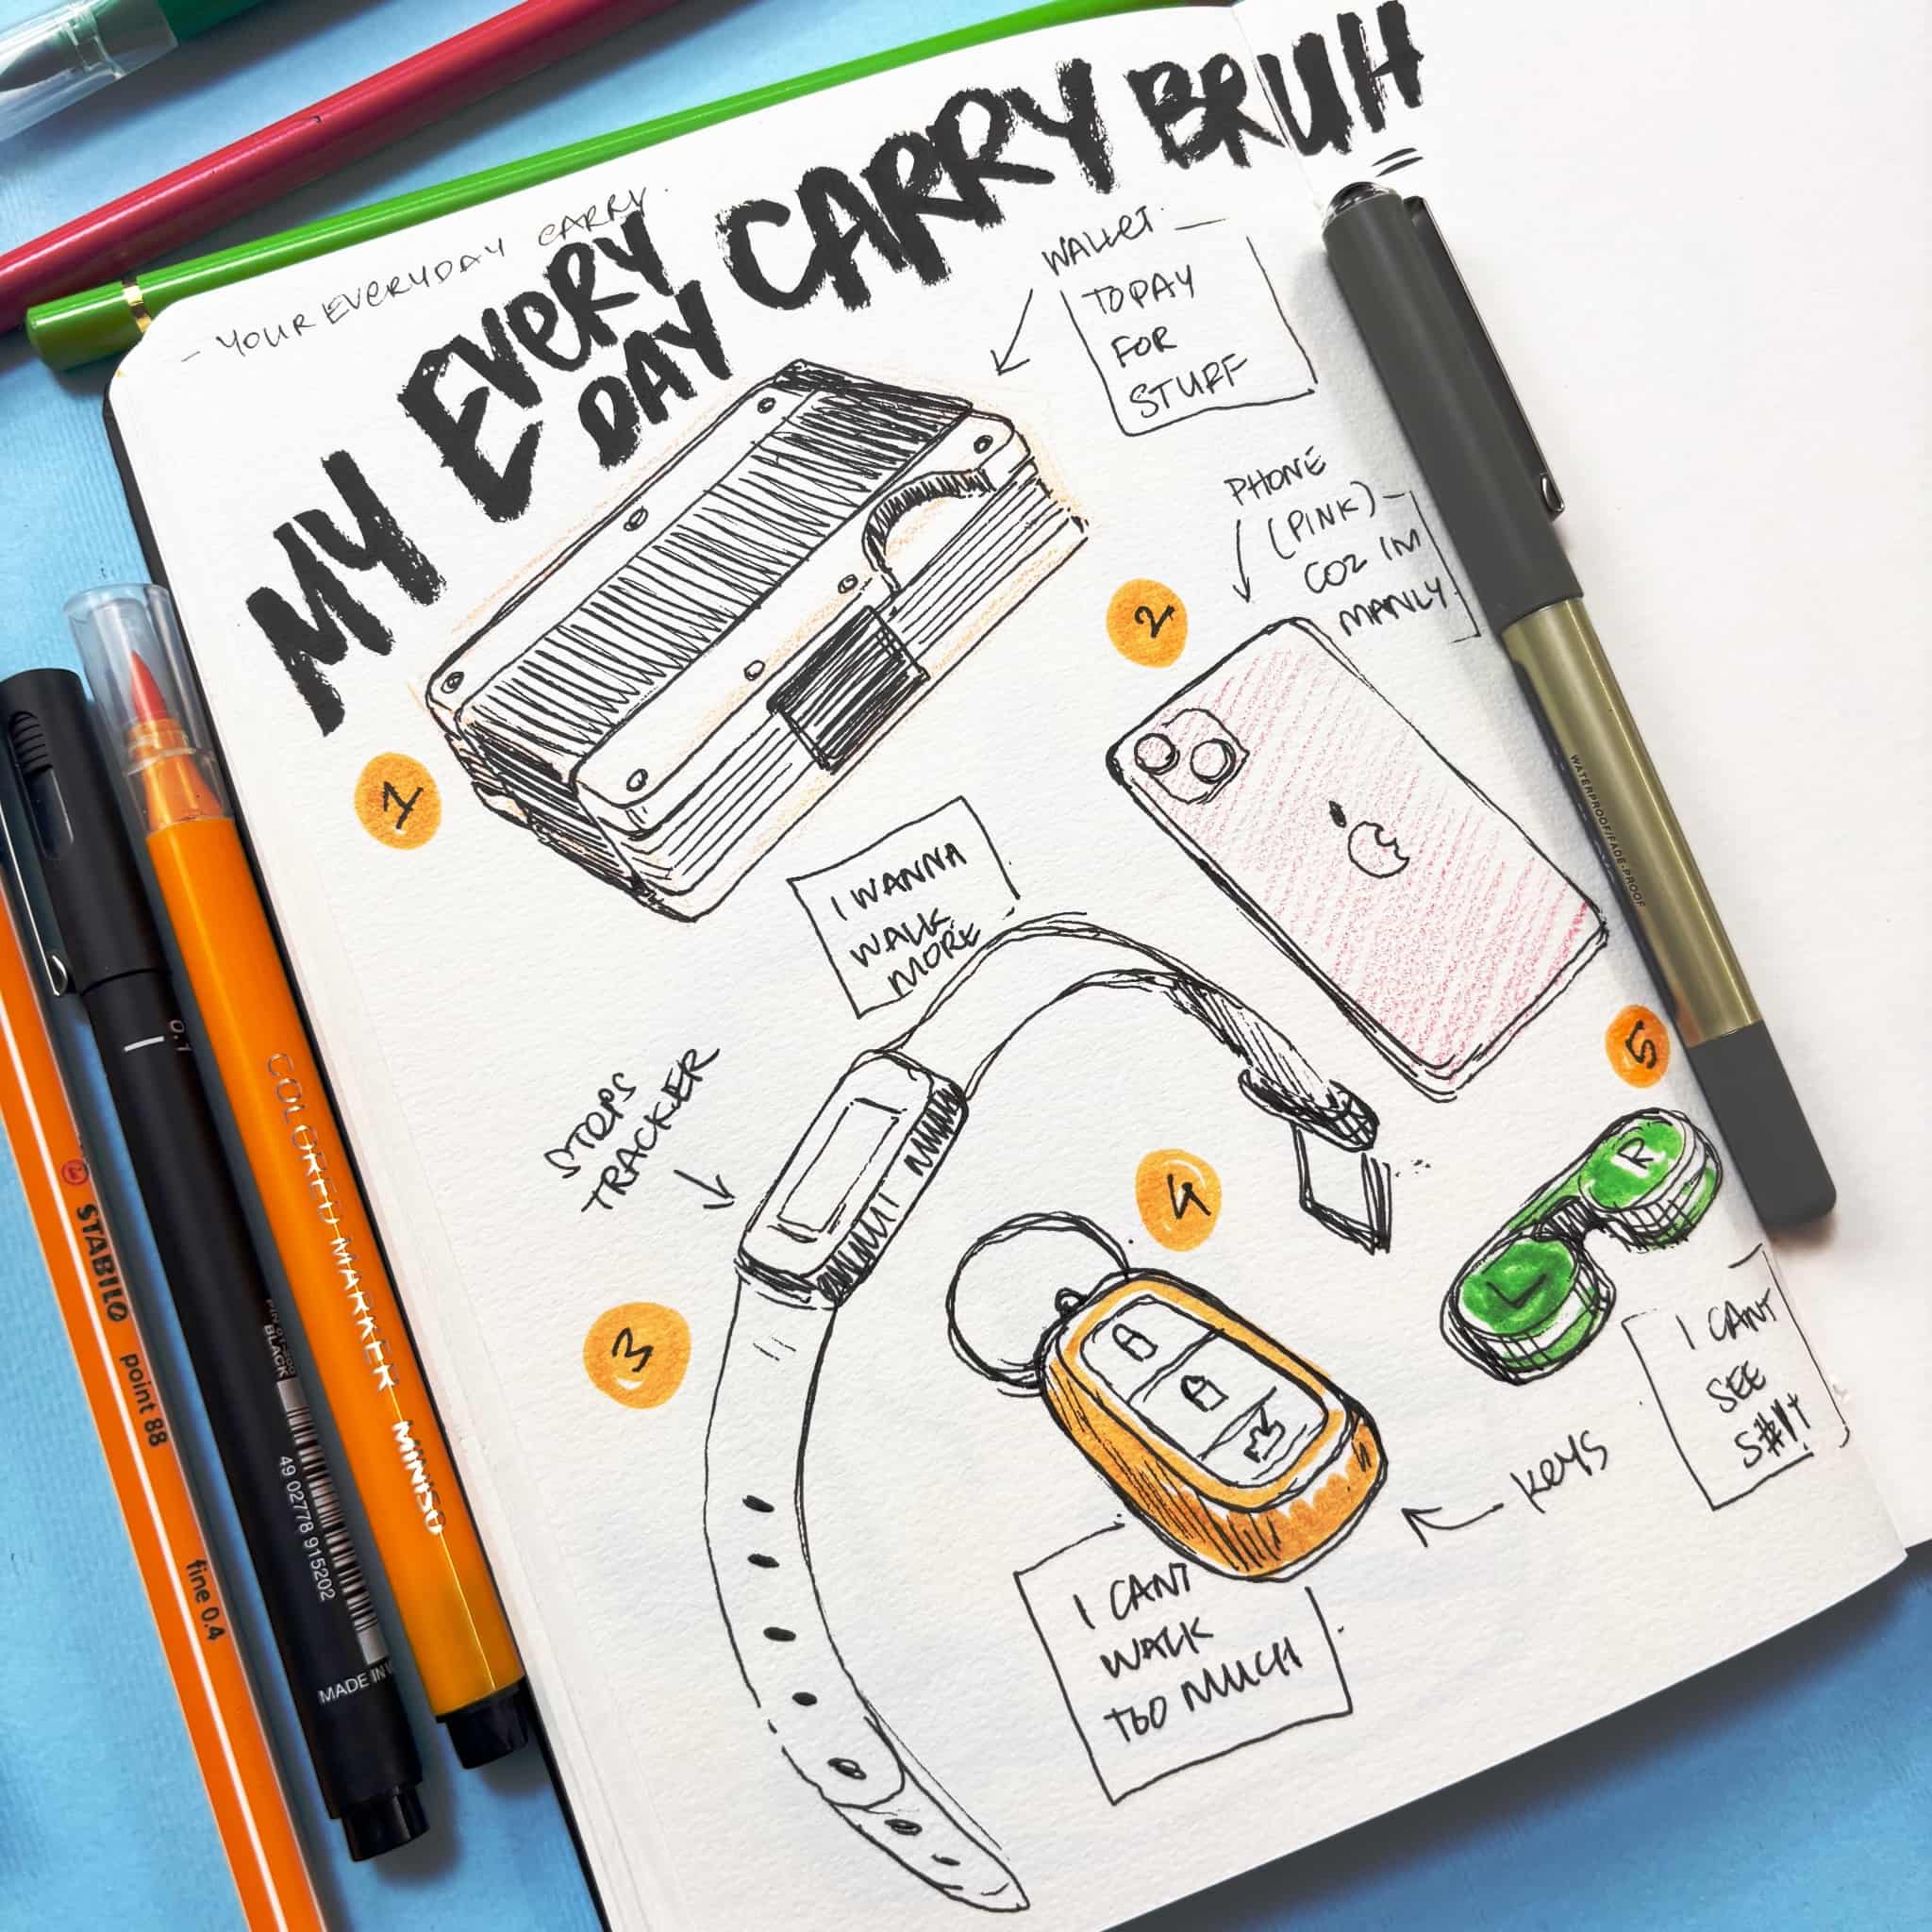 - YOUR EVERYDAY CARRY.
MY EVERY DAY CARRY BRUH
WALLET.
TO PAY
FOR
STUFF
PHONE
(PINK)
COZ IM
MANLY.
1
2
I WANNA
WALK
MORE
STEPS
TRACKER
3
4
5
R
L
I CANT
SEE
S#!T
KEYS
I CANT
WALK
TOO MUCH
WATERPROOF/FADE-PROOF
STABILO
point 88
fine 0.4
0.1
BLACK
49 02778 915202
MADE IN
COLORED MARKER
MINISO